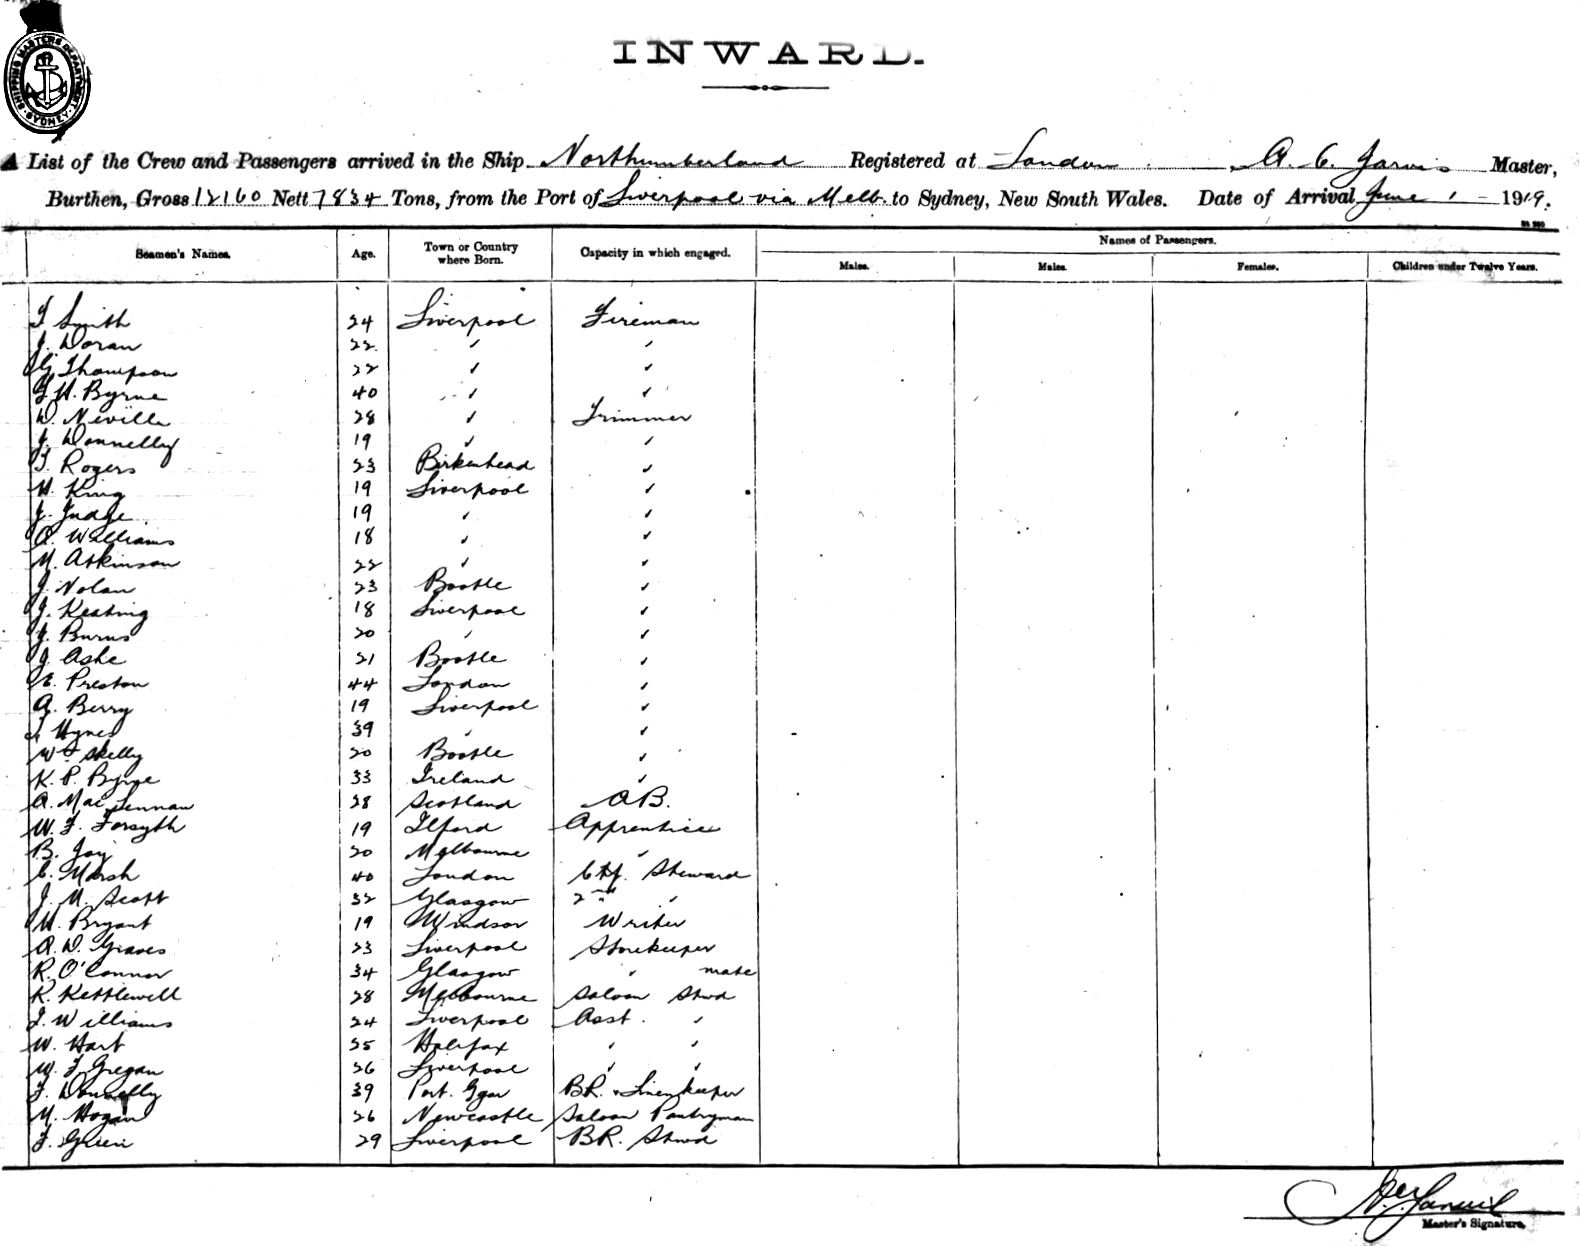 SHIPPING MASTERS DEPARTMENT SYDNEY
INWARD.
A List of the Crew and Passengers arrived in the Ship Northumberland Registered at London, A. C. Jarvis Master,
Burthen, Gross 12160 Nett 7834 Tons, from the Port of Liverpool via Melb. to Sydney, New South Wales. Date of Arrival June 1 1919.
Names of Passengers.
Seamen's Names. Age. Town or Country where Born. Capacity in which engaged. Males. Males. Females. Children under Twelve Years.
T Smith 24 Liverpool Fireman
J. Doran 22 " "
G Thompson 22 " "
T. H. Byrne 40 " "
D. Neville 28 " Trimmer
J. Donnelly 19 " "
T. Rogers 23 Birkenhead "
H. King 19 Liverpool "
J. Judge 19 " "
A. Williams 18 " "
M. Atkinson 22 " "
J. Nolan 23 Bootle "
J. Keating 18 Liverpool "
J. Burns 20 " "
J. Ashe 21 Bootle "
E. Preston 44 London "
A. Berry 19 Liverpool "
Hynes 39 " "
W Skelly 20 Bootle "
K. P. Byrne 33 Ireland "
A. MacLennan 28 Scotland A.B.
W. F. Forsyth 19 Ilford Apprentice
B. Joy 20 Melbourne "
C. Marsh 40 London Chf. Steward
J. M. Scott 32 Glasgow 2nd "
H. Bryant 19 Windsor Writer
A. D. Graves 23 Liverpool Storekeeper
R. O'Connor 34 Glasgow " mate
R. Kettlewell 28 Melbourne Saloon Stwd
J. Williams 24 Liverpool Asst. "
W. Hart 35 Halifax " "
W. J. Gregan 26 Liverpool " "
J. Donnelly 39 Port. BR. & Linenkeeper
M. Hogan 26 Newcastle Saloon Pantryman
F. Green 29 Liverpool BR. Stwd
Master's Signature.